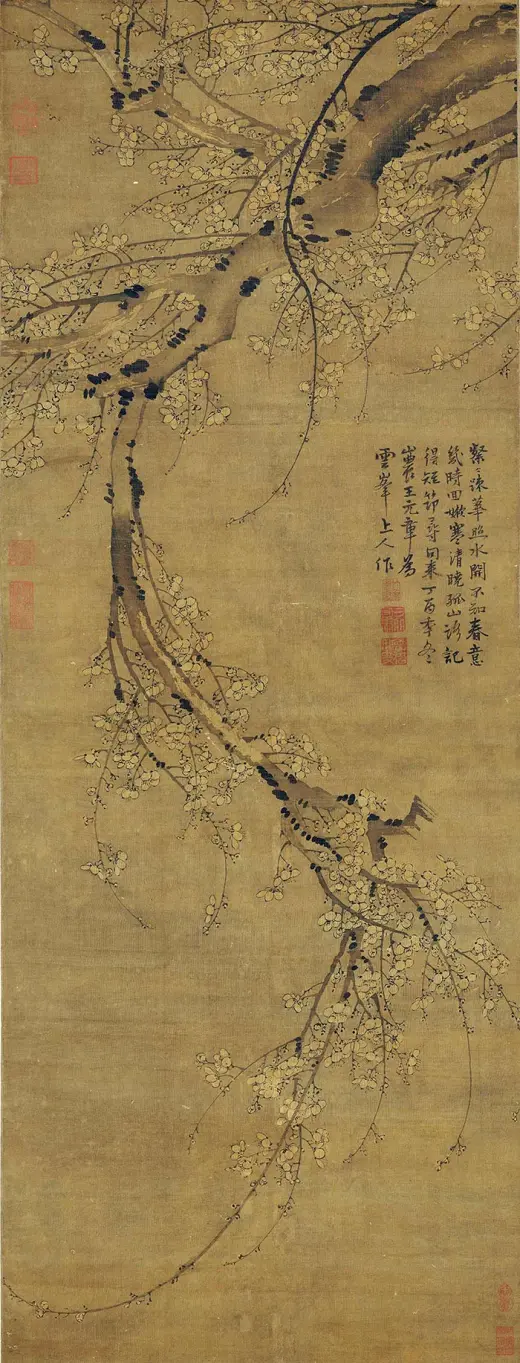 繁〻疎華照水開不知春意
幾時回嫩寒清曉孤山路記
得短筇尋句来丁酉季冬
山農王元章為
雲峯上人作